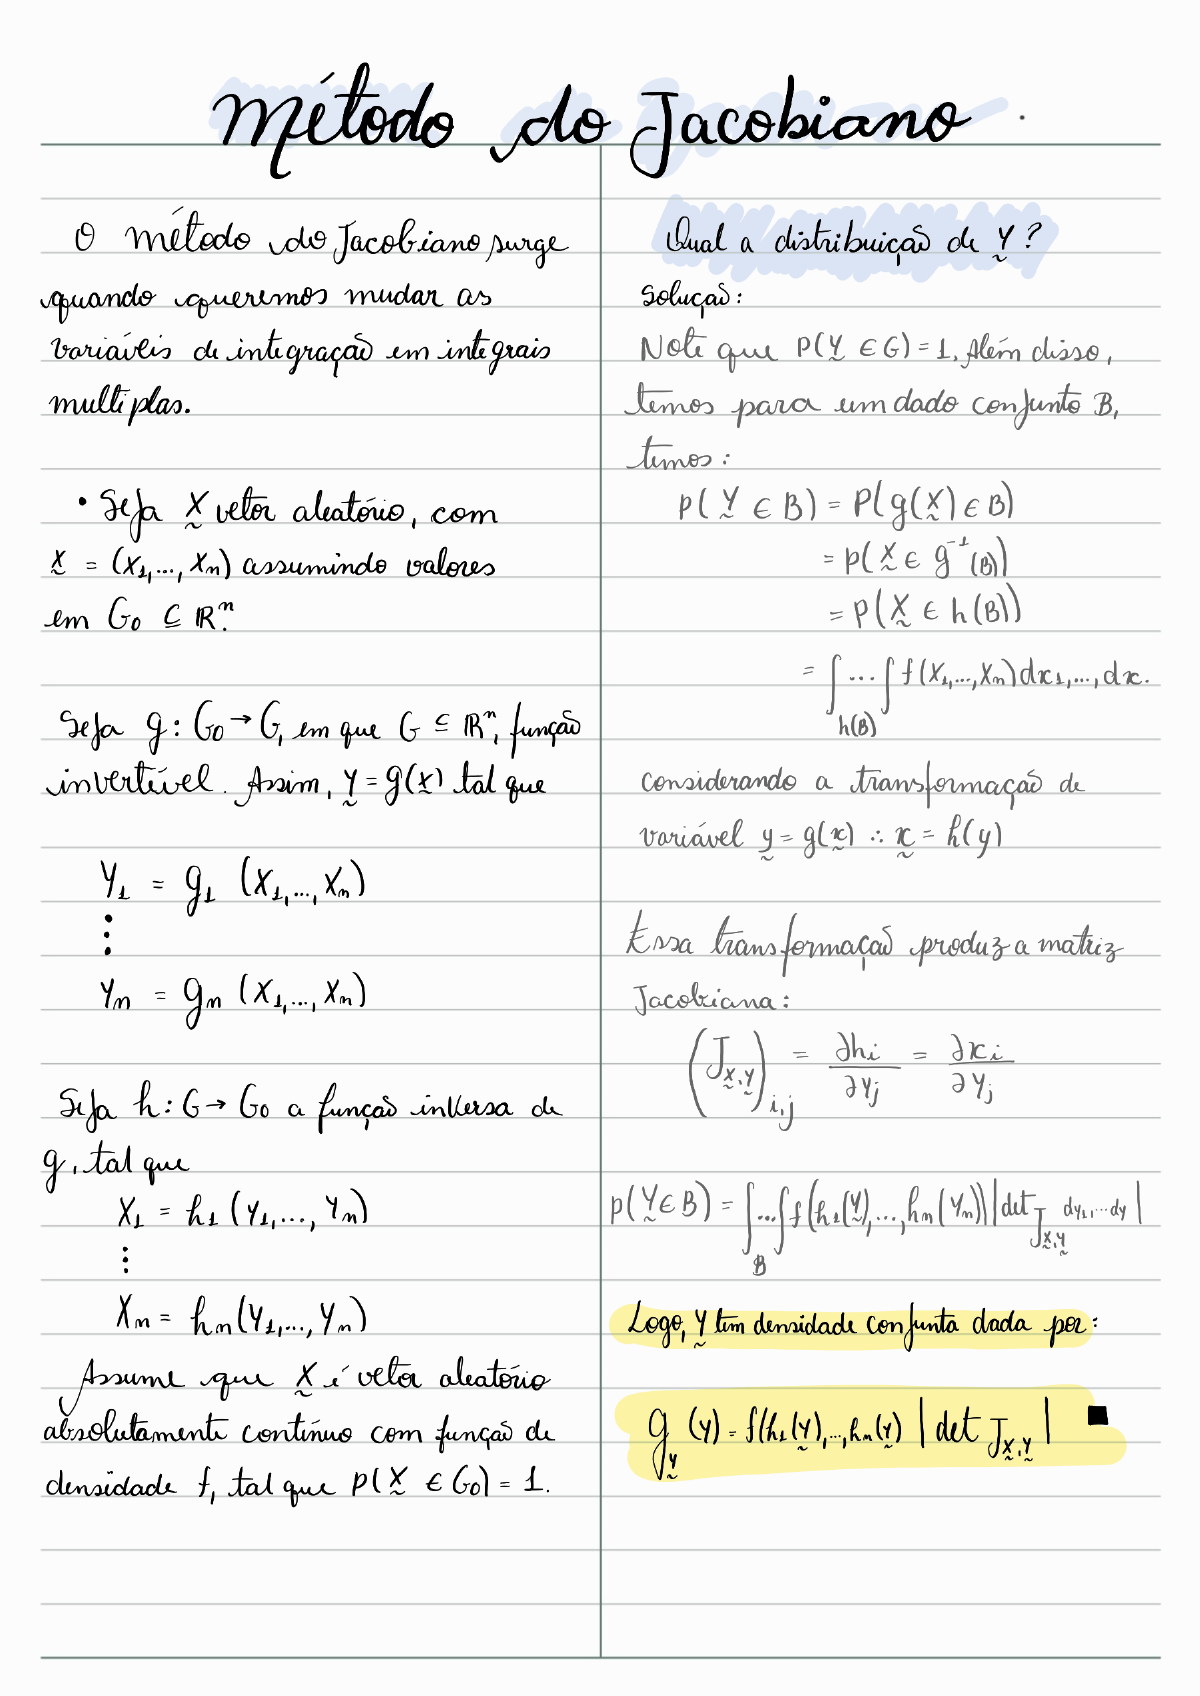 Método do Jacobiano.
O método do Jacobiano surge
quando queremos mudar as
variáveis de integração em integrais
multiplas.
• Seja X̰ vetor aleatório, com
x̰ = (X₁,..., Xₙ) assumindo valores
em G₀ ⊆ ℝⁿ.
Seja g: G₀ → G, em que G ⊆ ℝⁿ, função
invertível. Assim, Y̰ = g(x̰) tal que
Y₁ = g₁ (X₁,..., Xₙ)
⋮
Yₙ = gₙ (X₁,..., Xₙ)
Seja h: G → G₀ a função inversa de
g, tal que
X₁ = h₁ (Y₁,..., Yₙ)
⋮
Xₙ = hₙ(Y₁,..., Yₙ)
Assume que X̰ é vetor aleatório
absolutamente contínuo com função de
densidade f, tal que P(X̰ ∈ G₀) = 1.
Qual a distribuição de Y̰?
Solução:
Note que P(Y̰ ∈ G) = 1. Além disso,
temos para um dado conjunto B,
temos:
P(Y̰ ∈ B) = P(g(X̰) ∈ B)
= P(X̰ ∈ g⁻¹(B))
= P(X̰ ∈ h(B))
= ∫...∫ f(X₁,..., Xₙ) dx₁,..., dx.
h(B)
considerando a transformação de
variável y̰ = g(x̰) ∴ x̰ = h(y)
Essa transformação produz a matriz
Jacobiana:
(J_X̰,Y̰)_i,j = ∂hᵢ/∂Yⱼ = ∂xᵢ/∂Yⱼ
P(Y̰ ∈ B) = ∫...∫ f(h₁(Y̰),..., hₙ(Yₙ)) |det J_X̰,Y̰ dy₁,...dy|
B
Logo, Y̰ tem densidade conjunta dada por:
g_Y̰ (y) = f(h₁(Y̰),..., hₙ(Y̰) | det J_X̰,Y̰ | ■